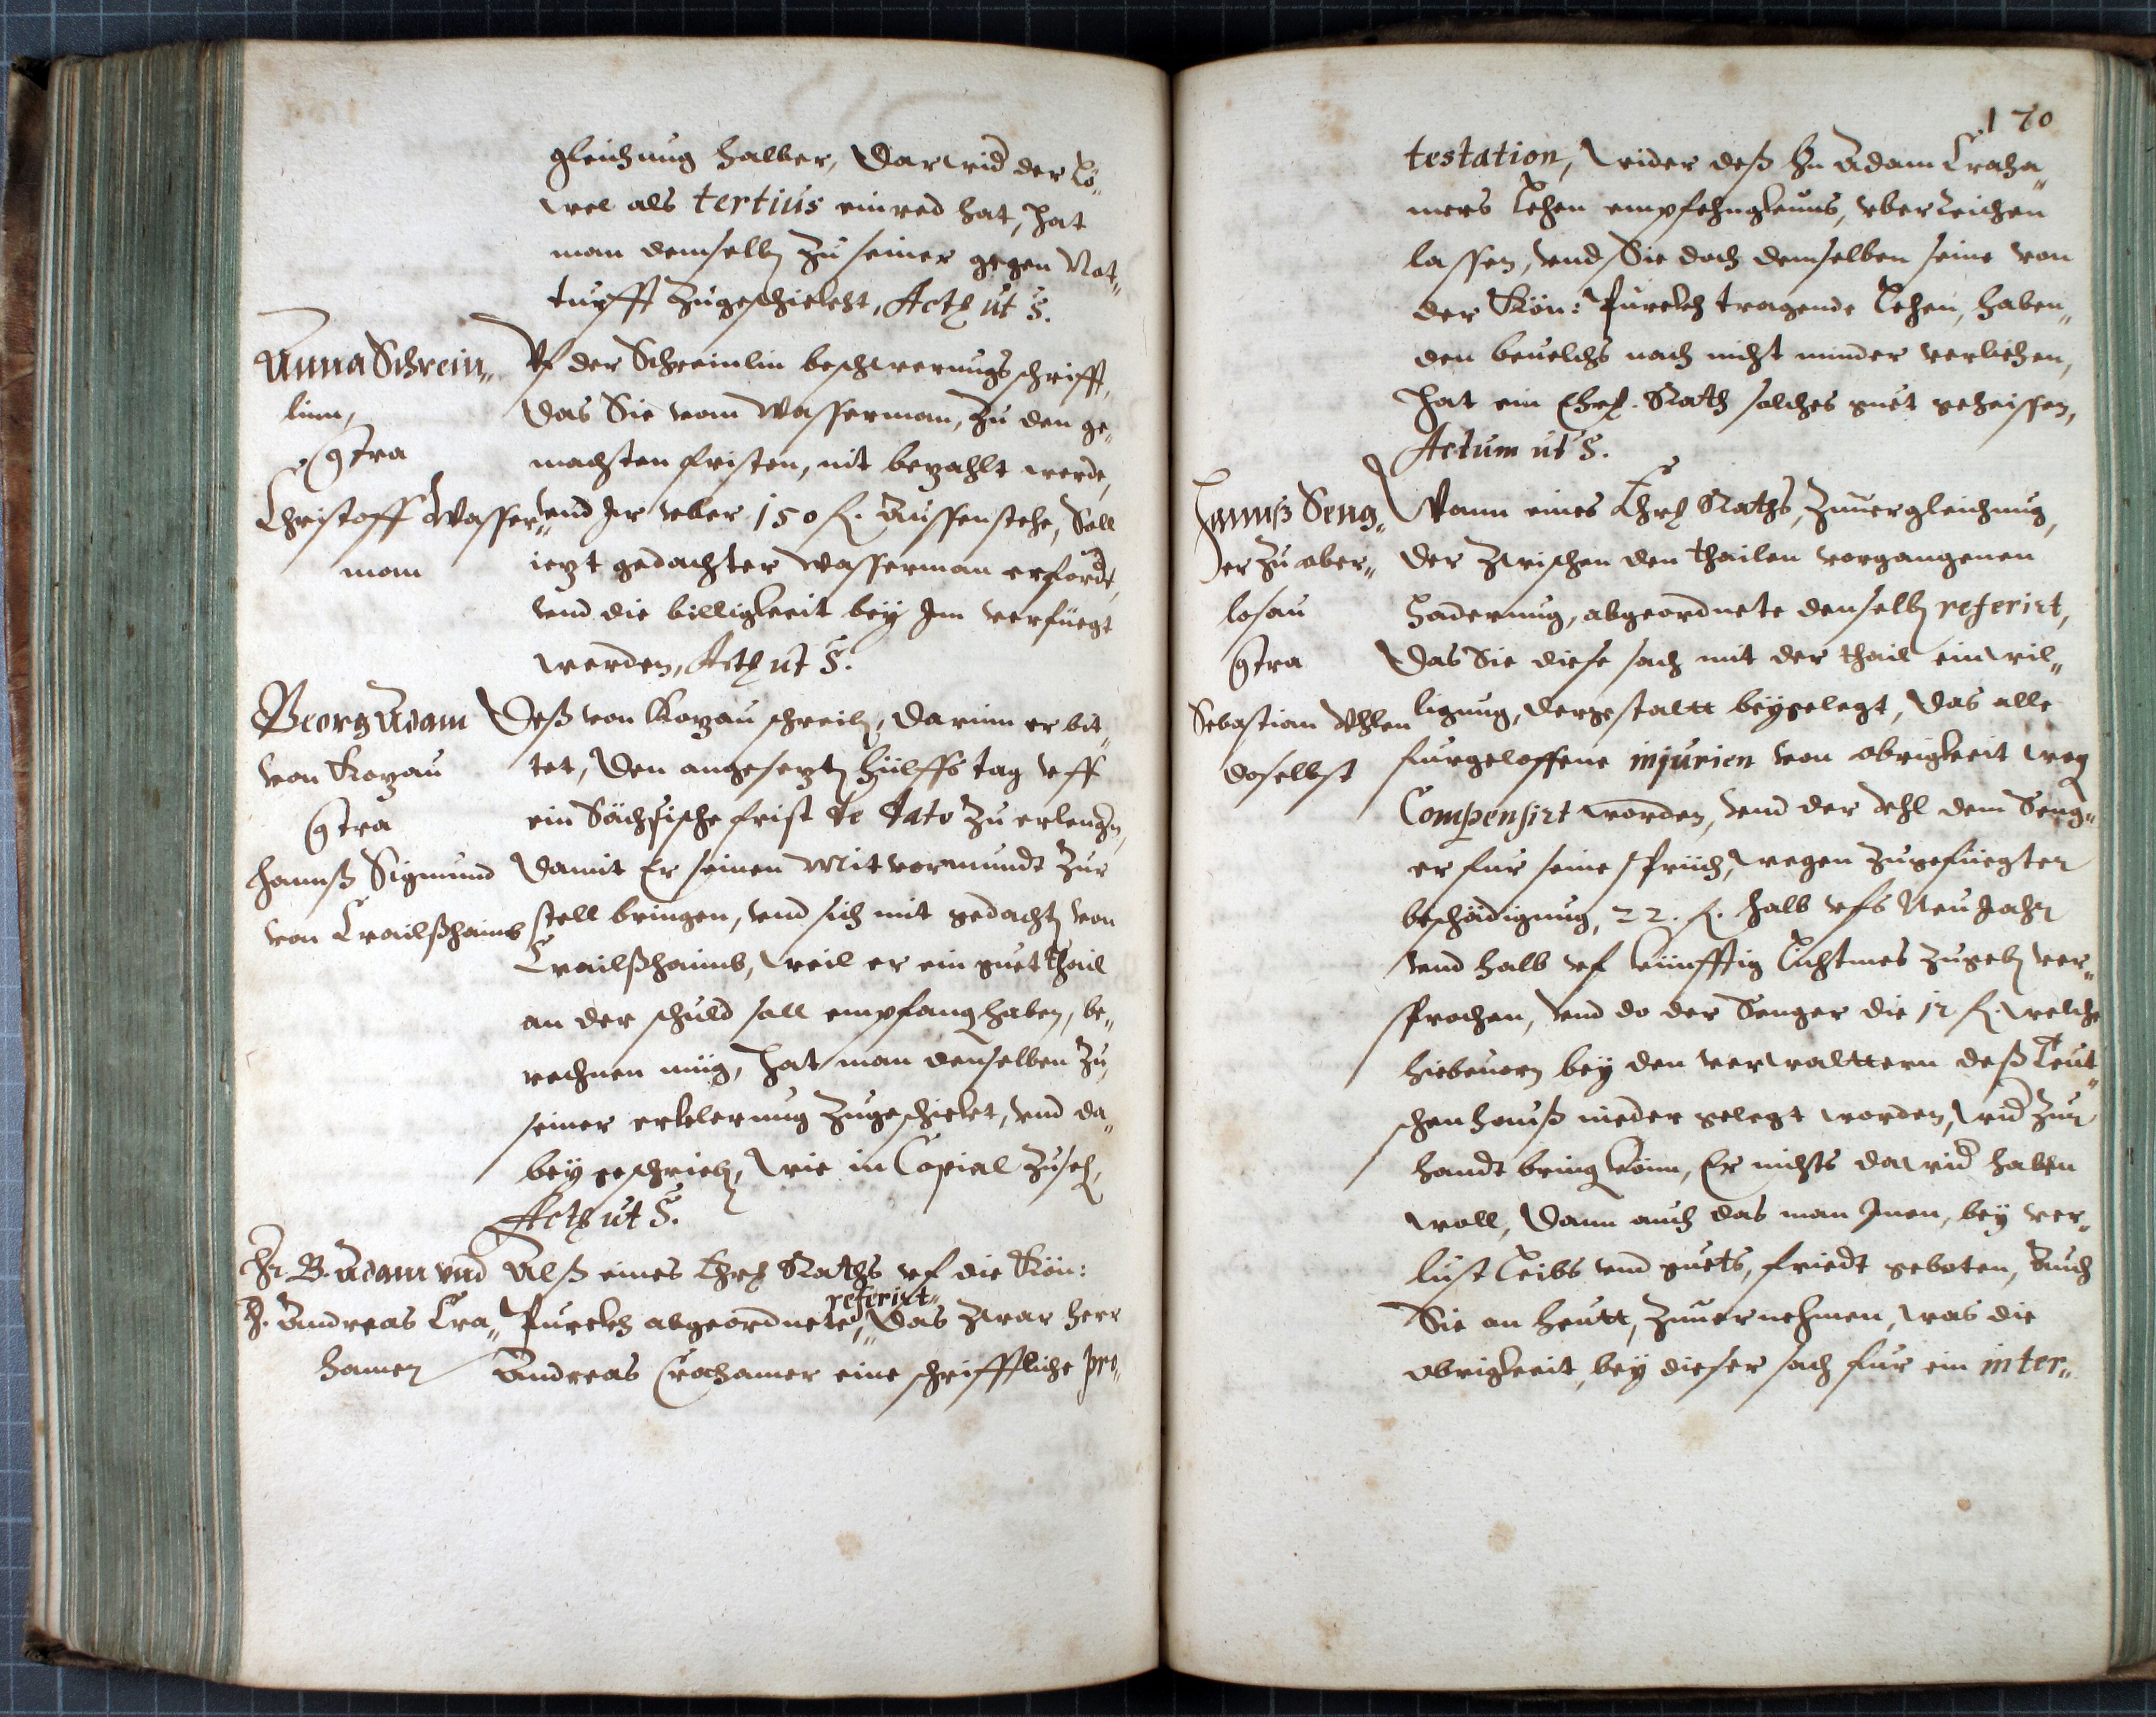 gleichung halber, Darwid der Lö„
wel als tertius einred hat, hat
man demselb zu seiner gegen Not„
turfft zugeschickht, Act ut s.
Anna Schrein„
linn,
Contra
Christoff Wasser„
man
Vf der Schreinlin beschwerungs schrifft,
Das Sie vom Wasserman, zu den ge„
machten fristen, nit bezahlt werde,
vnd Jr vber 150 fl. Aussenstehe, Soll
iezt gedachter Wasserman erfordt,
vnd die billigkeit bey Jm verfüegt
werden, Act ut s.
Georg Adam
von Kozau
Contra
Hannß Sigmund
von Crailßhaimb
Deß von Kozau schreib, Darinn er bit„
tet, Den angesezt hülffs tag vff
ein Sächsische frist de dato zu erlengn,
Damit Er seinen Mit vormundt zur
stell bringen, vnd sich mit gedacht von
Crailßhaimb, weil er ein guet thail
an der schuld soll empfang haben, be„
rechnen müg, hat man denselben zu
seiner erklerung zugeschickt, vnd da„
bey geschrieb, wie in Copial zuseh,
Act ut s.
Hr B. Adam vnd
H. Andreas Cra„
hamer
Alß eines Ehrn Raths vf die Kön:
Purckh abgeordnete, referirt„ Das zwar Herr
Andreas Crahamer eine schrifftliche pro„
170
testation, wider deß Hn Adam Craha„
mers Lehen empfehngknus, vberreichen
lassen, vnd Sie doch demselben seine von
der Kön: Purckh tragende Lehen, haben„
den beuelchs nach nicht minder verliehen,
Hat ein Ehrn. Rath solches guet geheissen,
Actum ut s.
Hannß Seng„
er zu ober„
losau
Contra
Sebastian Uhlen
doselbst
Wann eines Ehrn Raths, Zuuergleichung,
der zwischen den thailen vorgangenen
Haderung, abgeordnete denselb referirt,
Das Sie diese sach mit der thail einwil„
ligung, dergestaltt beygelegt, Das alle
furgeloffene injurien von obrigkeit weg
Compensirt worden, Vnd der Uhl dem Seng„
er fur seine sprüch, wegen zugefüegter
beschädigung, 22. fl. halb vfs Neu Jahr
vnd halb vf künfftig Lichtmes zugeb ver„
sprochen, Vnd do der Senger die 12 fl. welche
hiebeuorn bey den verwalttern deß Teut„
schenhauß nieder gelegt worden, wid zur
handt bring könn, Er nichts dawid haben
woll, Dann auch das man Jnen, bey ver„
lust Leibs vnd guets, friedt geboten, Auch
Sie an heutt, zuuernehmen, was die
obrigkeit, bey dieser sach fur ein inter„